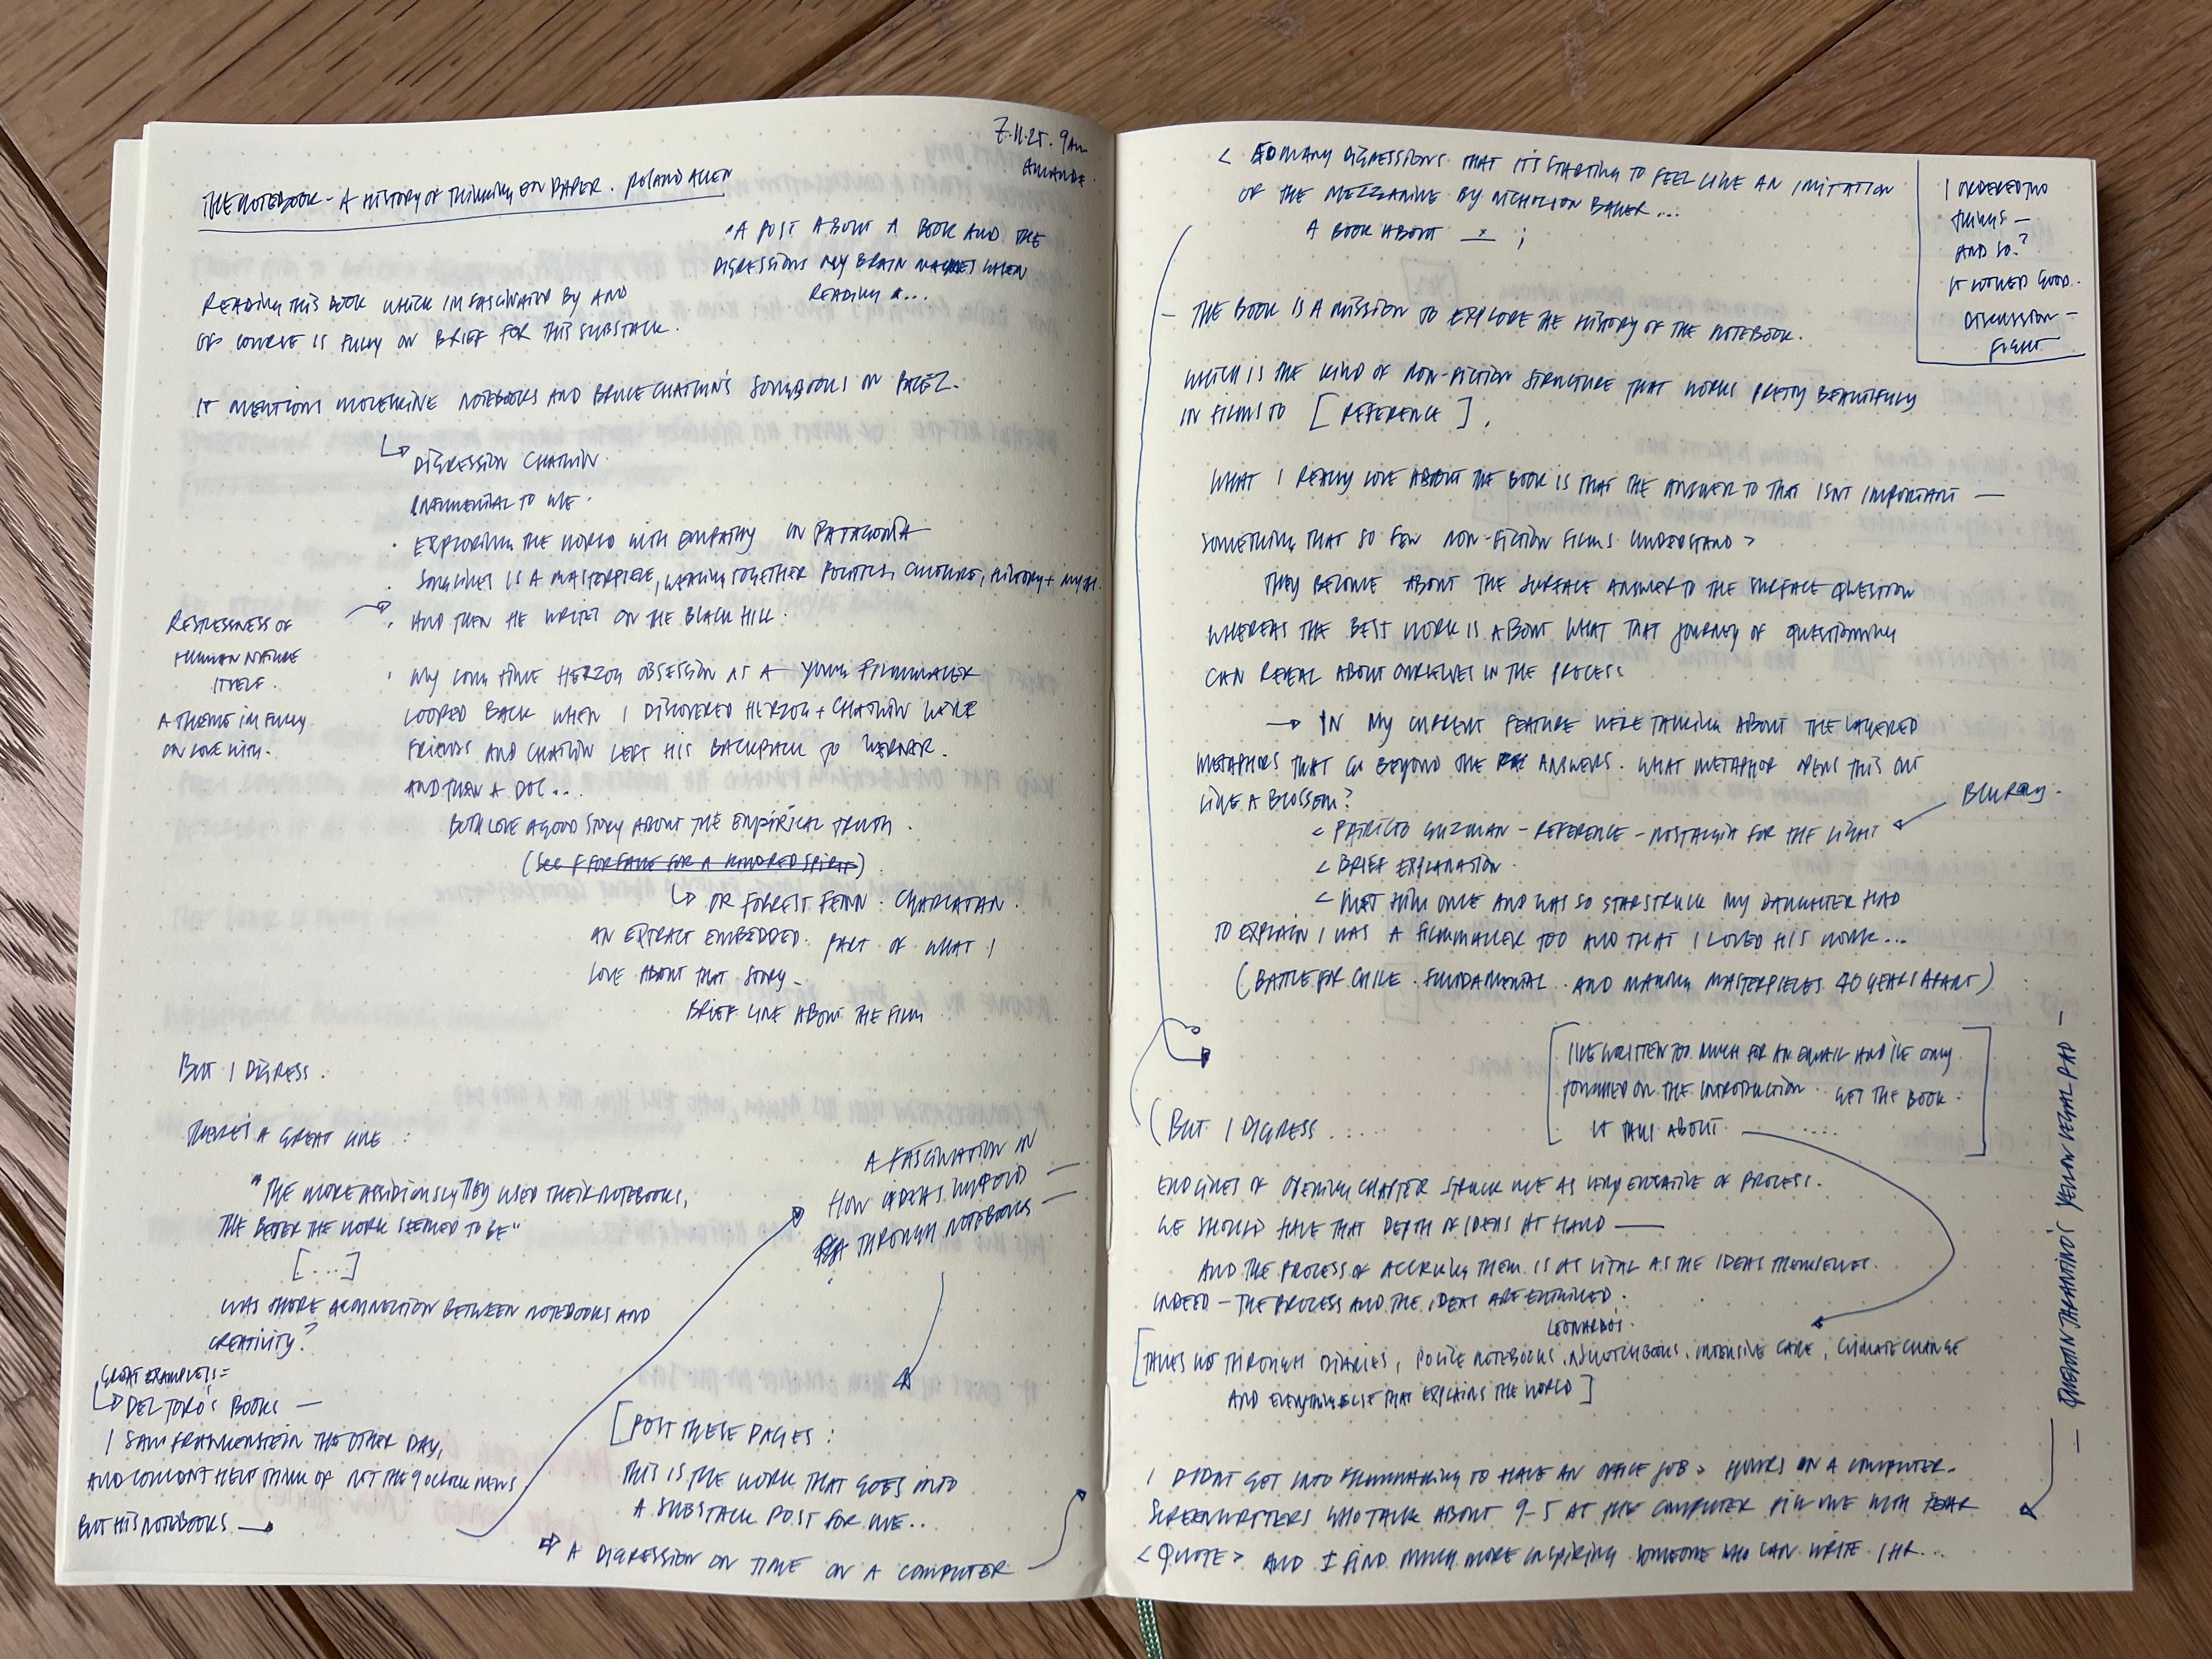 7.11.25. 9am
AMANDE.
THE NOTEBOOK - A HISTORY OF THINKING ON PAPER. ROLAND ALLEN
"A POST ABOUT A BOOK AND THE
DIGRESSIONS MY BRAIN MAKES WHEN
READING A...
READING THIS BOOK WHICH IM FASCINATED BY AND
OF COURSE IS FULLY ON BRIEF FOR THIS SUBSTACK.
IT MENTIONS MOLESKINE NOTEBOOKS AND BRUCE CHATWIN'S SONGBOOKS ON PAGE 2.
DIGRESSION CHATWIN.
TO ME.
· EXPLORING THE WORLD WITH EMPATHY IN PATAGONIA
· SONGLINES IS A MASTERPIECE, WEAVING TOGETHER POLITICS, CULTURE, HISTORY + MYTH.
· AND THEN HE WRITES ON THE BLACK HILL.
RESTLESSNESS OF
HUMAN NATURE
ITSELF.
A THEME IM FULLY
IN LOVE WITH.
· MY LONG TIME HERZOG OBSESSION AS A YOUNG FILMMAKER
LOOPED BACK WHEN I DISCOVERED HERZOG + CHATWIN WERE
FRIENDS AND CHATWIN LEFT HIS BACKPACK TO WERNER.
AND THEN A DOC...
BOTH LOVE A GOOD STORY ABOUT THE EMPIRICAL TRUTH.
(SEE F FOR FAKE FOR A KINDRED SPIRIT)
OR FORREST FENN. CHARLATAN.
AN EXTRACT EMBEDDED. PART OF WHAT I
LOVE ABOUT THAT STORY -
BRIEF LINE ABOUT THE FILM
BUT I DIGRESS.
THERE'S A GREAT LINE:
"THE MORE ASSIDIOUSLY THEY USED THEIR NOTEBOOKS,
THE BETTER THE WORK SEEMED TO BE"
[....]
WAS THERE A CONNECTION BETWEEN NOTEBOOKS AND
CREATIVITY?
GREAT EXAMPLES =
DEL TORO'S BOOKS —
I SAW FRANKENSTEIN THE OTHER DAY,
AND COULDNT HELP THINK OF NOT THE 9 OCLOCK NEWS
BUT HIS NOTEBOOKS
A FASCINATION IN
HOW IDEAS UNFOLD —
THROUGH NOTEBOOKS —
[POST THESE PAGES:
THIS IS THE WORK THAT GOES INTO
A SUBSTACK POST FOR ME..
A DIGRESSION ON TIME ON A COMPUTER
< SO MANY DIGRESSIONS THAT IT'S STARTING TO FEEL LIKE AN IMITATION
OF THE MEZZANINE BY NICHOLSON BAKER...
A BOOK ABOUT _x_ ;
I ORDERED TWO
THINGS —
AND SO?
IT LOOKED GOOD.
DISCUSSION —
FIGHT
- THE BOOK IS A MISSION TO EXPLORE THE HISTORY OF THE NOTEBOOK.
WHICH IS THE KIND OF NON-FICTION STRUCTURE THAT WORKS PRETTY BEAUTIFULLY
IN FILMS TO [REFERENCE].
WHAT I REALLY LOVE ABOUT THE BOOK IS THAT THE ANSWER TO THAT ISNT IMPORTANT —
SOMETHING THAT SO FEW NON-FICTION FILMS UNDERSTAND >
THEY BECOME ABOUT THE SURFACE ANSWER TO THE SURFACE QUESTION
WHEREAS THE BEST WORK IS ABOUT WHAT THAT JOURNEY OF QUESTIONING
CAN REVEAL ABOUT OURSELVES IN THE PROCESS
→ IN MY CURRENT FEATURE WERE TALKING ABOUT THE LAYERED
METAPHORS THAT GO BEYOND THE ANSWERS. WHAT METAPHOR OPENS THIS OUT
LIKE A BLOSSOM?
BLURAY.
< PATRICIO GUZMAN - REFERENCE - NOSTALGIA FOR THE LIGHT
< BRIEF EXPLANATION.
< MET HIM ONCE AND WAS SO STARSTRUCK MY DAUGHTER HAD
TO EXPLAIN I WAS A FILMMAKER TOO AND THAT I LOVED HIS WORK...
(BATTLE FOR CHILE. FUNDAMENTAL. AND MAKING MASTERPIECES 40 YEARS APART)
[I'VE WRITTEN TOO MUCH FOR AN EMAIL AND I'VE ONLY
TOUCHED ON THE INTRODUCTION.. GET THE BOOK.
IT TALKS ABOUT ....]
(BUT I DIGRESS .....
END LINES OF OPENING CHAPTER STRUCK ME AS OF PROCESS.
WE SHOULD HAVE THAT DEPTH OF IDEAS AT HAND —
AND THE PROCESS OF ACCRUING THEM IS AS VITAL AS THE IDEAS THEMSELVES.
INDEED - THE PROCESS AND THE IDEAS ARE ENTWINED.
LEONARDO'S.
[TAKES US THROUGH DIARIES, POLICE NOTEBOOKS, SKETCHBOOKS, INTENSIVE CARE, CLIMATE CHANGE
AND EVERYTHING ELSE THAT EXPLAINS THE WORLD]
I DIDNT GET INTO FILMMAKING TO HAVE AN OFFICE JOB > HOURS ON A COMPUTER.
SCREENWRITERS WHO TALK ABOUT 9-5 AT THE COMPUTER FILL ME WITH FEAR
<QUOTE> AND I FIND MUCH MORE INSPIRING SOMEONE WHO CAN WRITE 1 HR...
— QUENTIN TARANTINO'S YELLOW LEGAL PAD —